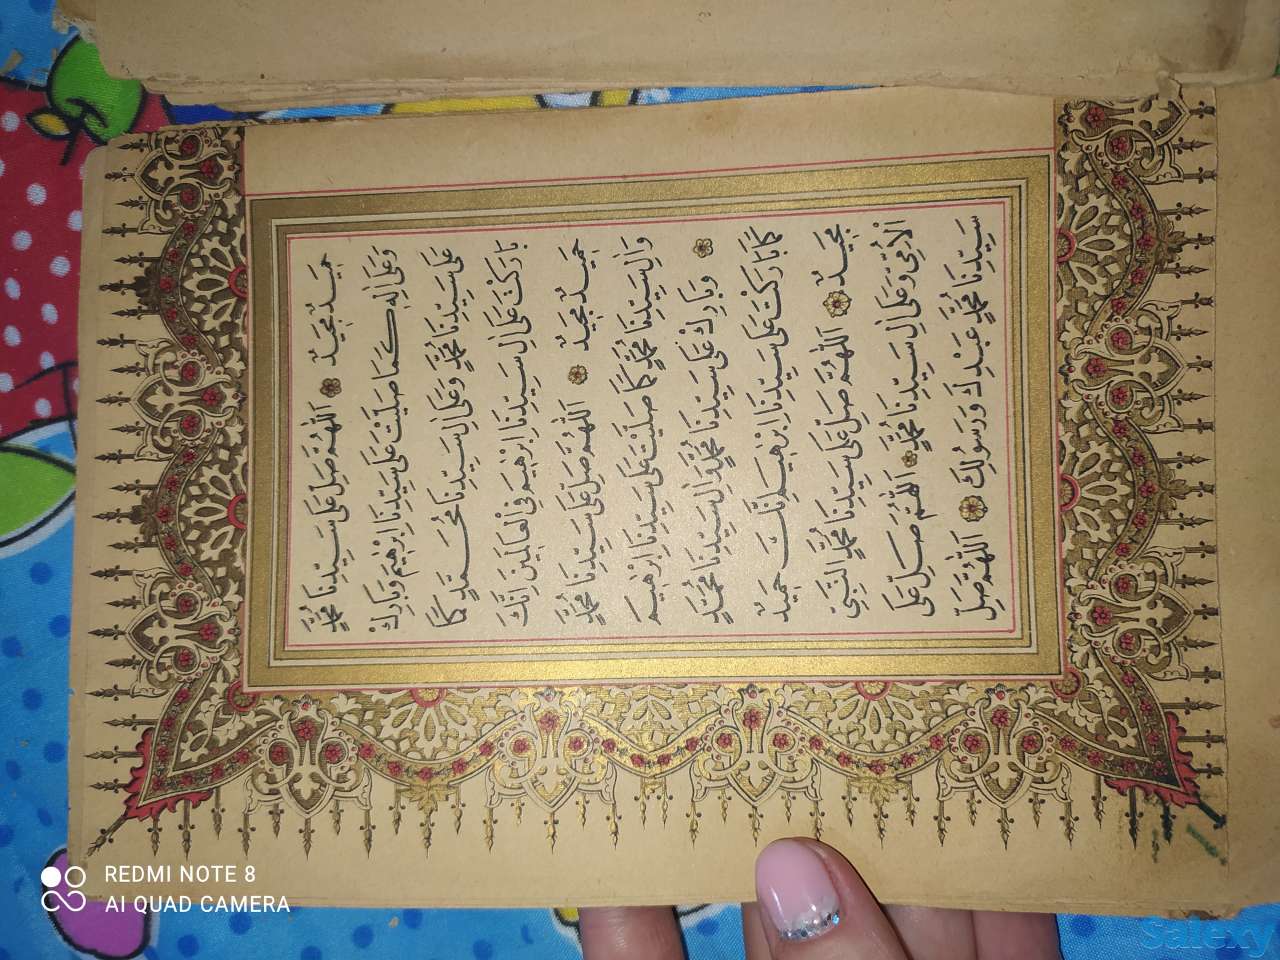 حَمِيدٌ مَجِيدٌ اَللّٰهُمَّ صَلِّ عَلٰى سَيِّدِنَا مُحَمَّدٍ
وَعَلٰى اٰلِهِ كَمَا صَلَّيْتَ عَلٰى سَيِّدِنَا اِبْرٰهِيمَ وَبَارِكْ
عَلٰى سَيِّدِنَا مُحَمَّدٍ وَعَلٰى اٰلِ سَيِّدِنَا مُحَمَّدٍ كَمَا
بَارَكْتَ عَلٰى اٰلِ سَيِّدِنَا اِبْرٰهِيمَ فِى الْعَالَمِينَ اِنَّكَ
حَمِيدٌ مَجِيدٌ اَللّٰهُمَّ صَلِّ عَلٰى سَيِّدِنَا مُحَمَّدٍ
وَاٰلِ سَيِّدِنَا مُحَمَّدٍ كَمَا صَلَّيْتَ عَلٰى سَيِّدِنَا اِبْرٰهِيمَ
وَبَارِكْ عَلٰى سَيِّدِنَا مُحَمَّدٍ وَاٰلِ سَيِّدِنَا مُحَمَّدٍ
كَمَا بَارَكْتَ عَلٰى سَيِّدِنَا اِبْرٰهِيمَ اِنَّكَ حَمِيدٌ
مَجِيدٌ اَللّٰهُمَّ صَلِّ عَلٰى سَيِّدِنَا مُحَمَّدٍ النَّبِىِّ
الْاُمِّىِّ وَعَلٰى اٰلِ سَيِّدِنَا مُحَمَّدٍ اَللّٰهُمَّ صَلِّ عَلٰى
سَيِّدِنَا مُحَمَّدٍ عَبْدِكَ وَرَسُولِكَ اَللّٰهُمَّ صَلِّ
REDMI NOTE 8
AI QUAD CAMERA
Salexy